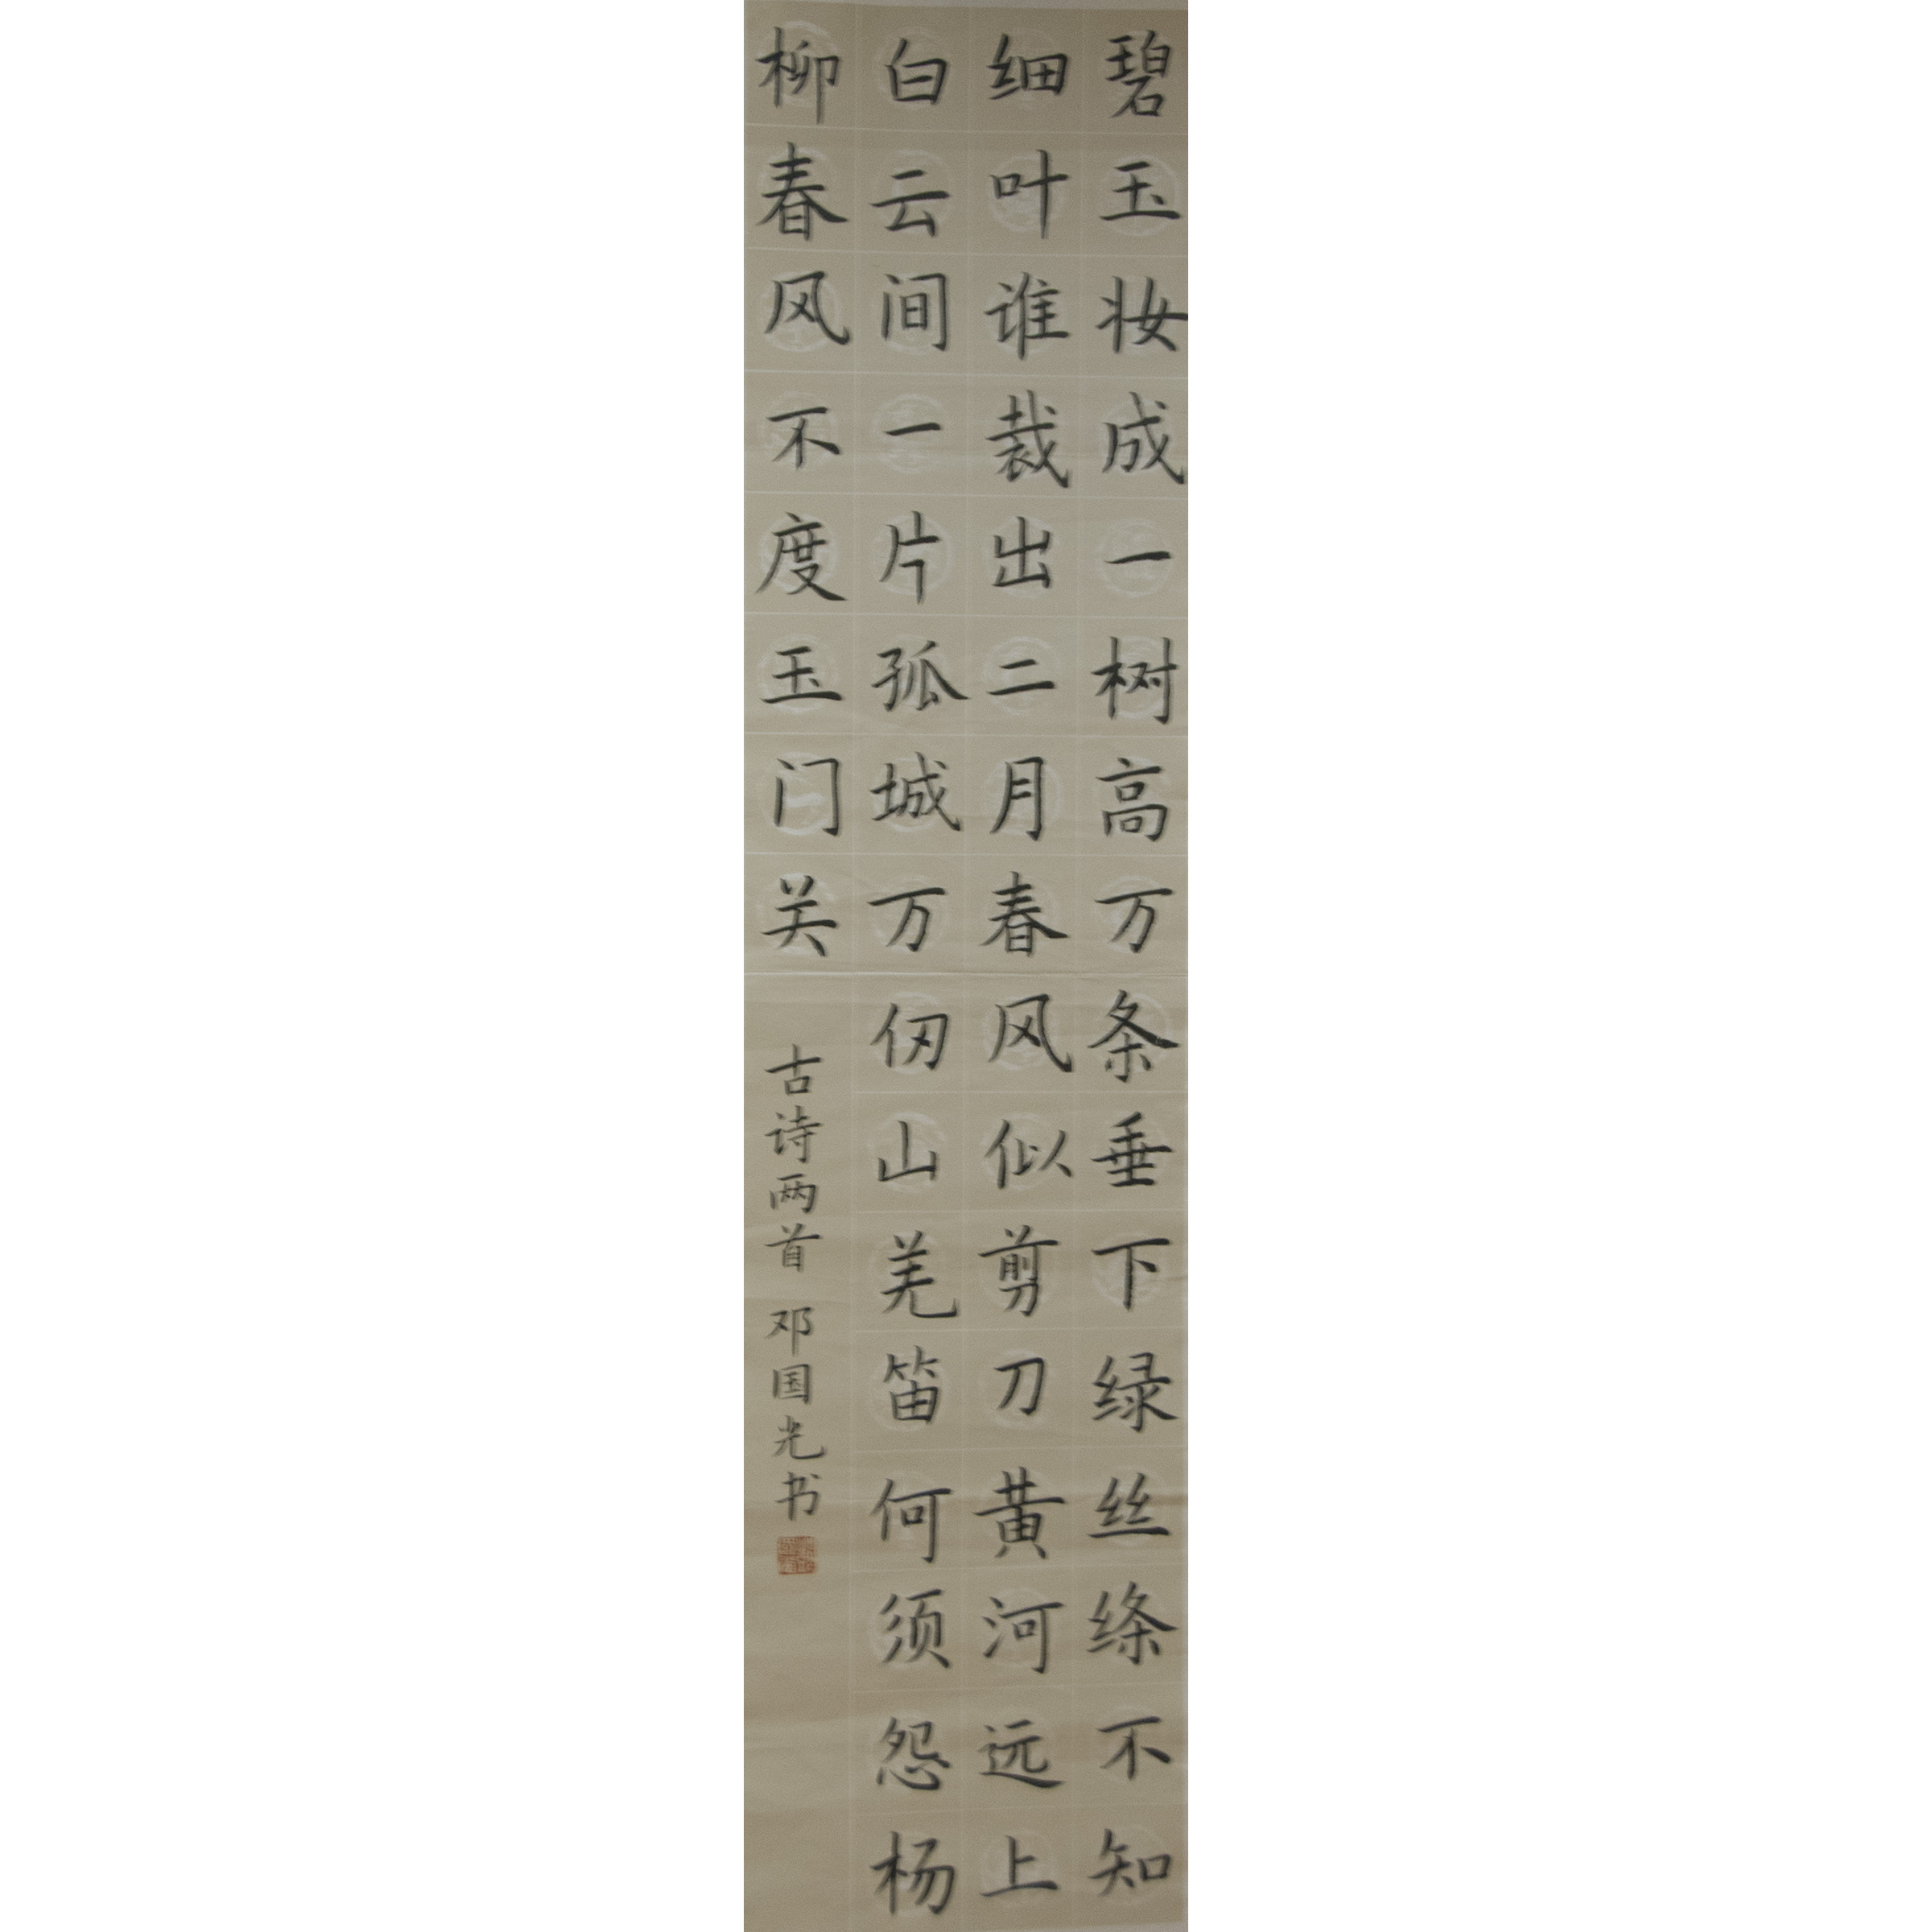 碧玉妆成一树高万条垂下绿丝绦不知
细叶谁裁出二月春风似剪刀黄河远上
白云间一片孤城万仞山羌笛何须怨杨
柳春风不度玉门关
古诗两首 邓国光书